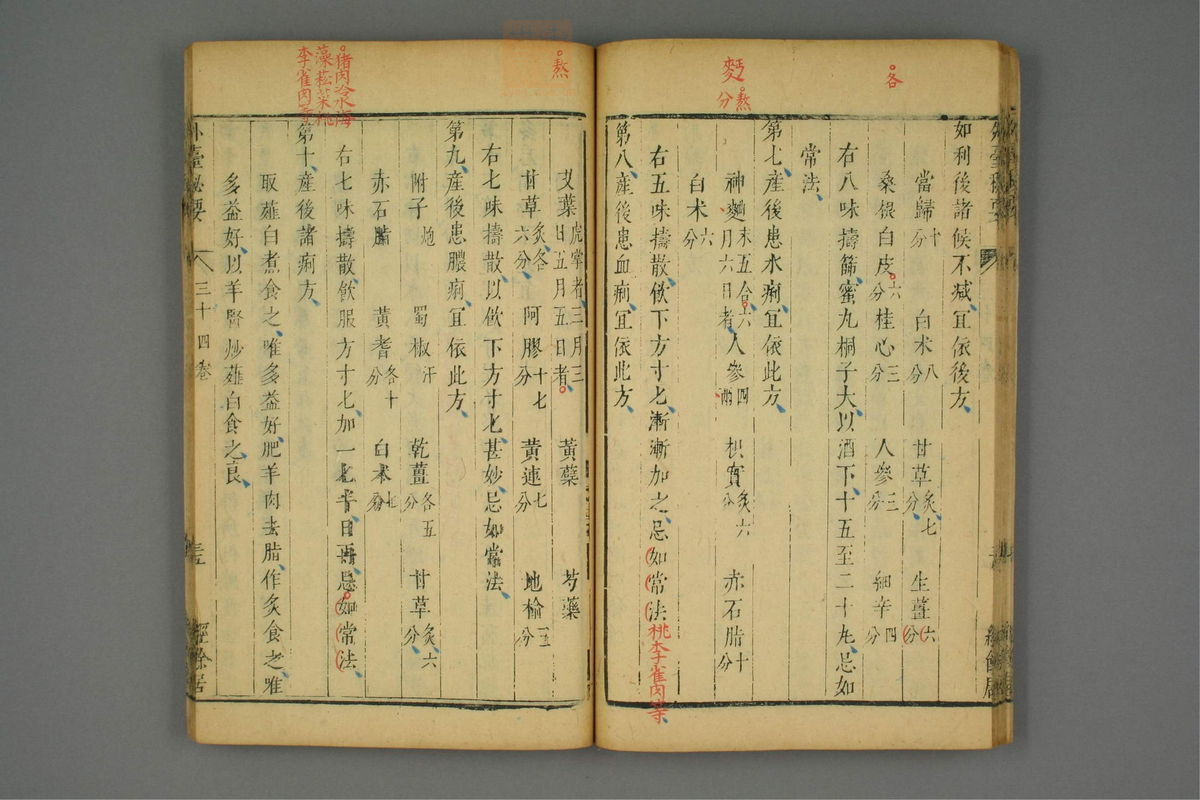 各
麫
熬
分
如利後諸候不減冝依後方
當歸十分 白朮八分 甘草炙七分 生薑六分
桑根白皮六分 桂心三分 人參三分 細辛四分
右八味擣篩蜜丸桐子大以酒下十五至二十丸忌如
常法
第七產後患水痢冝依此方
神麴末五合六月六日者 人參四兩 枳實炙六分 赤石脂十分
白朮六分
右五味擣散飲下方寸匕漸漸加之忌如常法桃李雀肉等
第八產後患血痢冝依此方
熬
艾葉虎掌者三月三日五月五日者 黃蘗 芍藥
甘草炙各六分 阿膠十七分 黃連七分 地榆五分
右七味擣散以飲下方寸匕甚妙忌如常法
第九產後患膿痢冝依此方
附子炮 蜀椒汗 乾薑各五分 甘草炙六分
赤石脂 黃耆各十分 白朮七分
右七味擣散飲服方寸匕加一匕半日再忌如常法
猪肉冷水海
藻菘菜桃
李雀肉等
第十產後諸痢方
取薤白煮食之唯多益好肥羊肉去脂作炙食之唯
多益好以羊腎炒薤白食之良
外臺秘要 三十四卷 經餘居